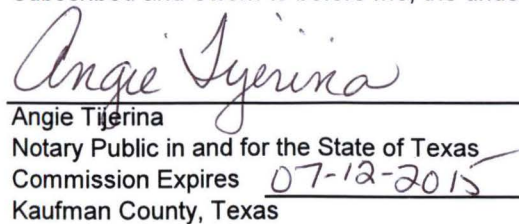 Angie Tijerina
Angie Tijerina
Notary Public in and for the State of Texas
Commission Expires 07-12-2015
Kaufman County, Texas